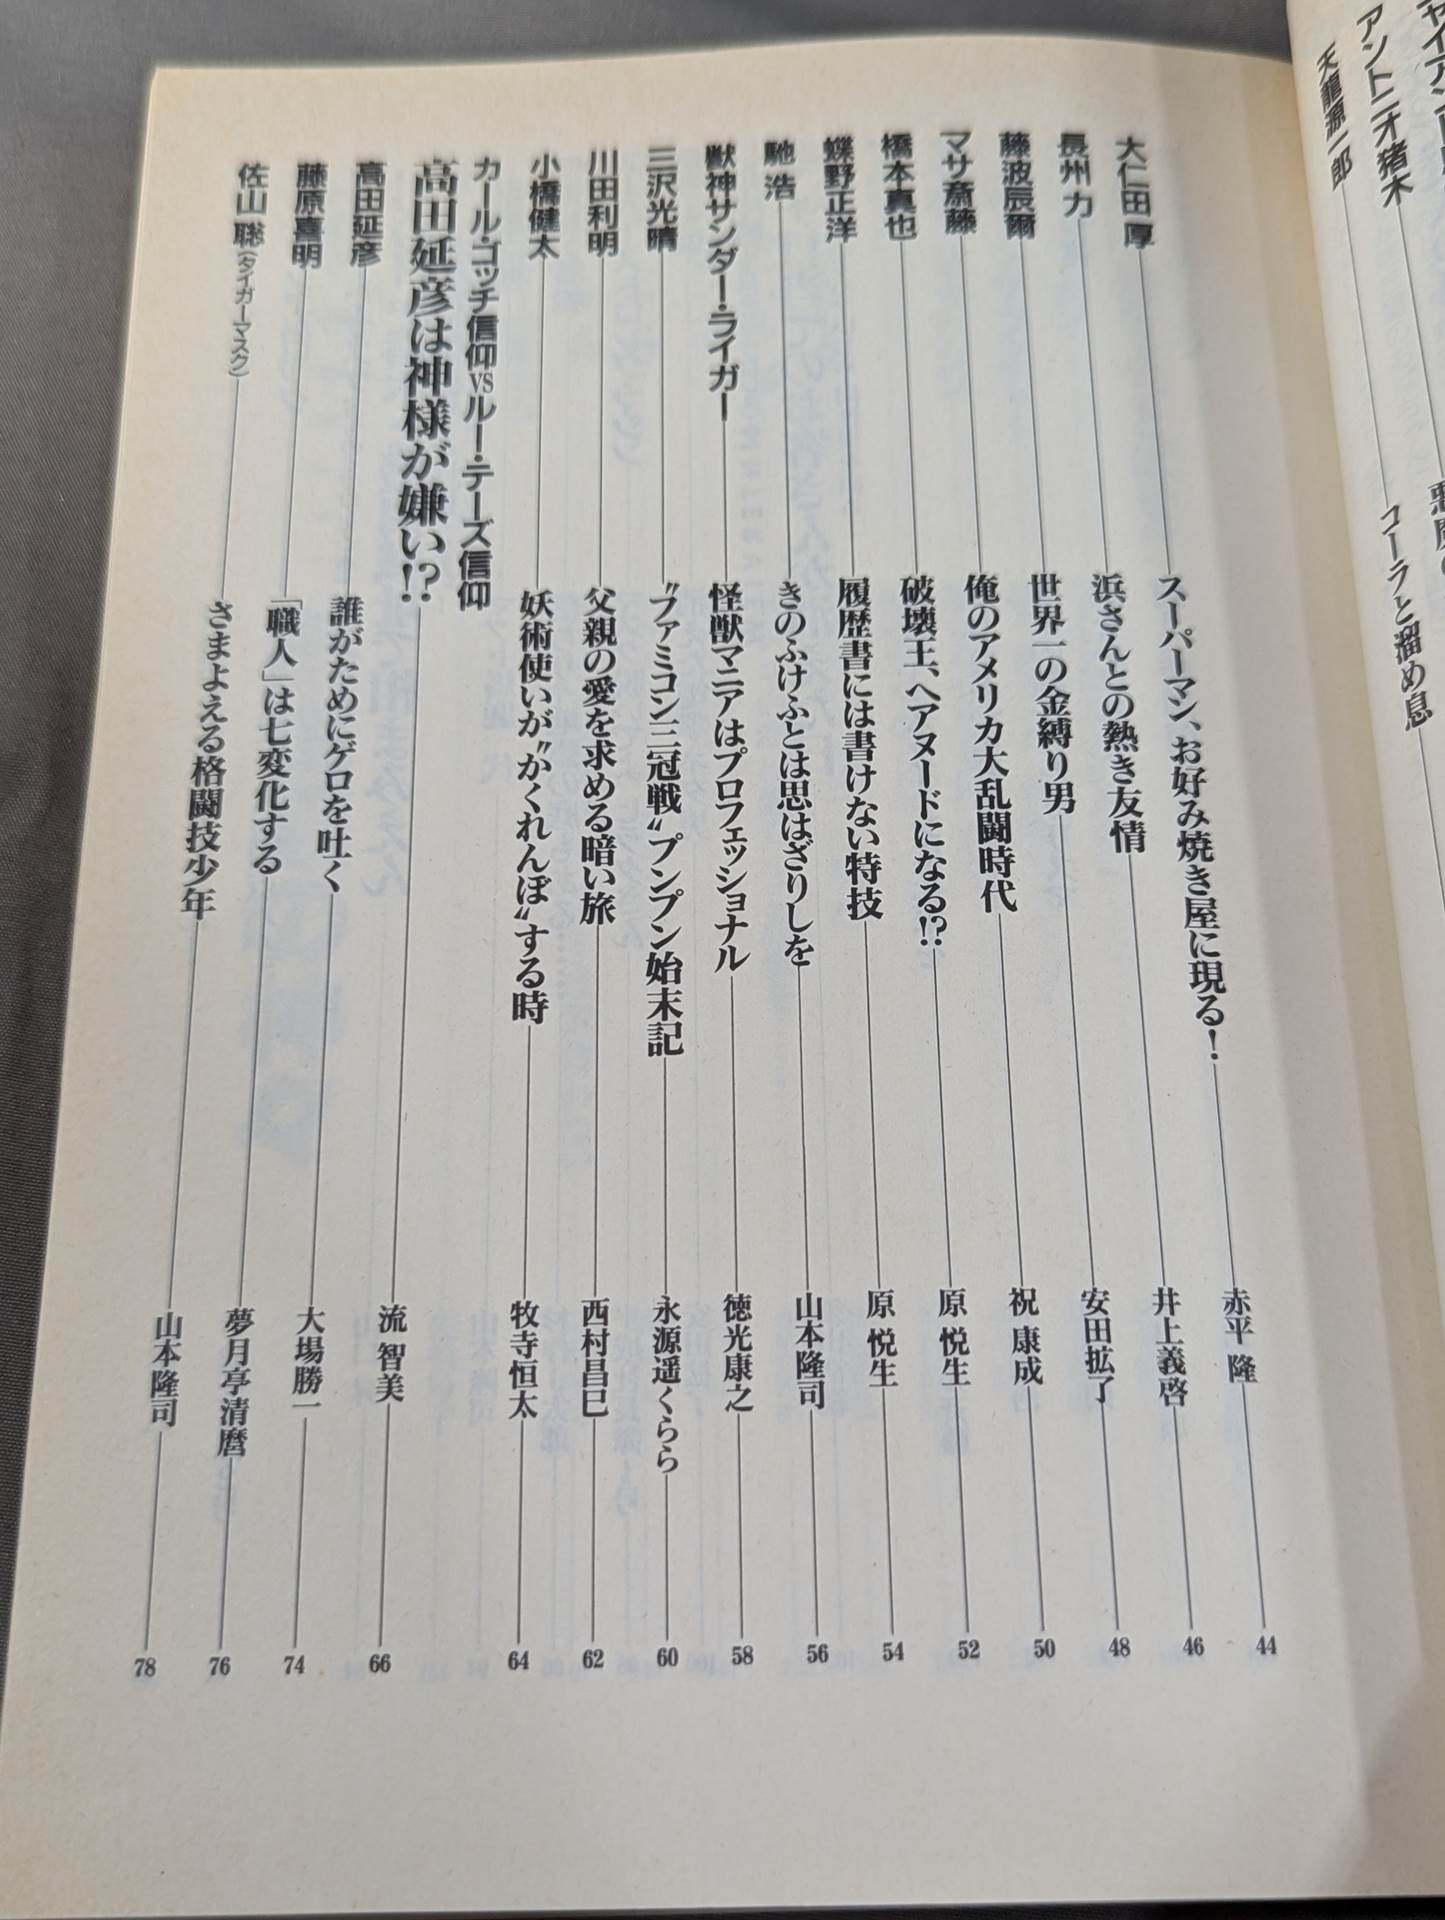 アントニオ猪木
天龍源一郎 コーラと溜め息
大仁田 厚 スーパーマン、お好み焼き屋に現る! 赤平 隆 44
長州 力 浜さんとの熱き友情 井上義啓 46
藤波辰爾 世界一の金縛り男 安田拡了 48
マサ斎藤 俺のアメリカ大乱闘時代 祝 康成 50
橋本真也 破壊王、ヘアヌードになる!? 原 悦生 52
蝶野正洋 履歴書には書けない特技 原 悦生 54
馳 浩 きのふけふとは思はざりしを 山本隆司 56
獣神サンダー・ライガー 怪獣マニアはプロフェッショナル 徳光康之 58
三沢光晴 〝ファミコン三冠戦〟プンプン始末記 永源遥くらら 60
川田利明 父親の愛を求める暗い旅 西村昌巳 62
小橋健太 妖術使いが〝かくれんぼ〟する時 牧寺恒太 64
カール・ゴッチ信仰vsルー・テーズ信仰
高田延彦は神様が嫌い!? 流 智美 66
高田延彦 誰がためにゲロを吐く 大場勝一 74
藤原喜明 「職人」は七変化する 夢月亭清麿 76
佐山 聡(タイガーマスク) さまよえる格闘技少年 山本隆司 78